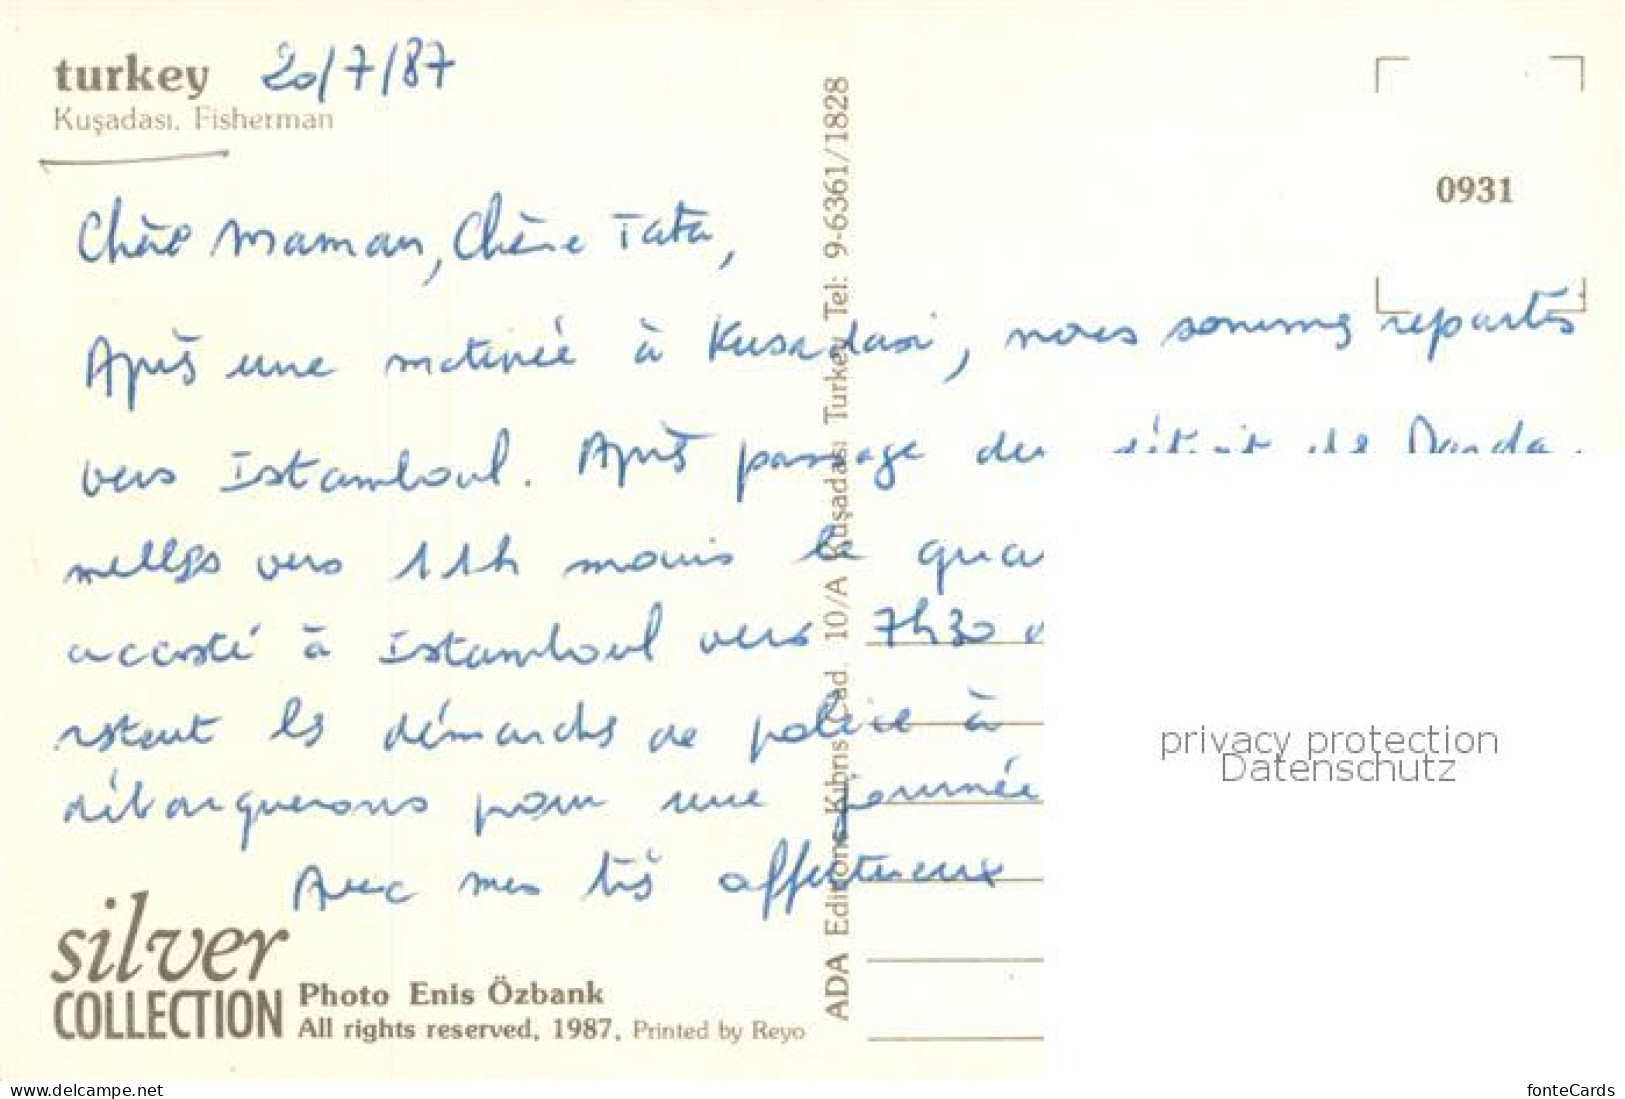 turkey 20/7/87
Kuşadası. Fisherman
0931
Chère Maman, Chère Tata,
Après une matinée à Kusadasi, nous sommes repartis
vers Istamboul. Après passage du détroit de Darda-
nelles vers 11h moins le
accosté à Istamboul vers 7h30
restent les démarches de police à
débarquerons pour une journée
Avec mes très affectueux
ADA Editions Kıbrıs Cad. 10/A Kuşadası Turkey Tel: 9-6361/1828
privacy protection
Datenschutz
silver
COLLECTION
Photo Enis Özbank
All rights reserved, 1987, Printed by Reyo
www.delcampe.net
fonteCards